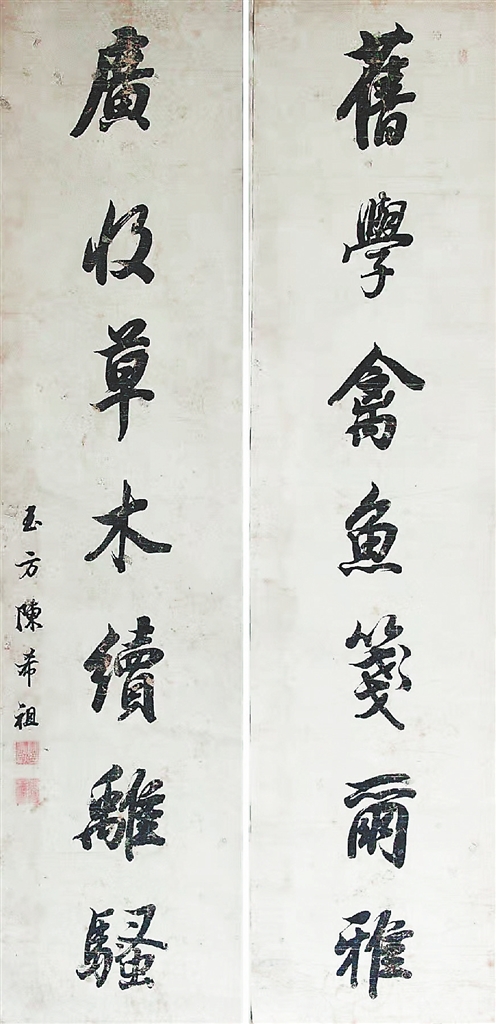 舊學禽魚箋爾雅
廣收草木續離騷
玉方陳希祖